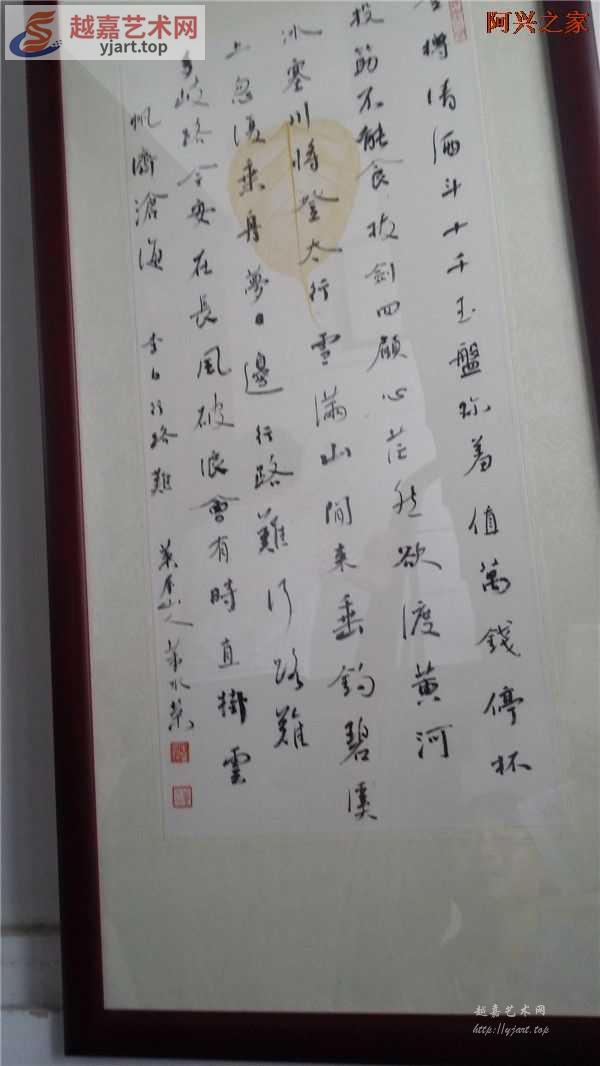 越嘉艺术网
yjart.top
阿兴之家
金樽清酒斗十千玉盤珍羞值萬錢停杯
投筯不能食拔劍四顧心茫然欲渡黃河
冰塞川將登太行雪滿山閒來垂釣碧溪
上忽復乘舟夢日邊行路難行路難
多岐路今安在長風破浪會有時直掛雲
帆濟滄海 李白行路難 山人
越嘉艺术网
http://yjart.top